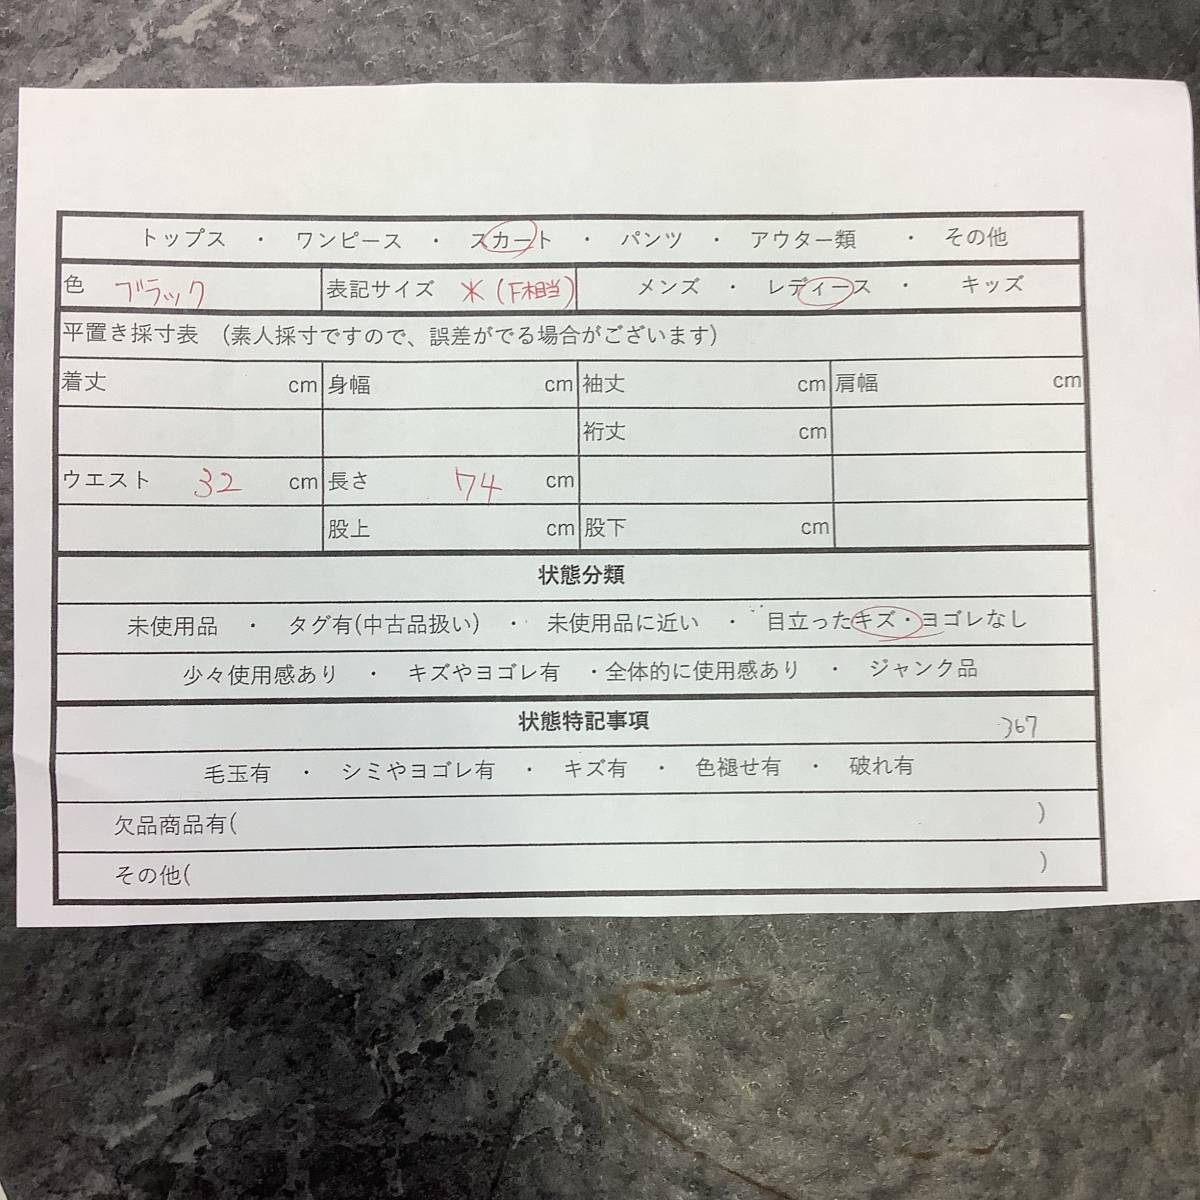 トップス ・ ワンピース ・ スカート ・ パンツ ・ アウター類 ・ その他
色 ブラック 表記サイズ ＊(F相当) メンズ ・ レディース ・ キッズ
平置き採寸表 (素人採寸ですので、誤差がでる場合がございます)
着丈 cm 身幅 cm 袖丈 cm 肩幅 cm
裄丈 cm
ウエスト 32 cm 長さ 74 cm
股上 cm 股下 cm
状態分類
未使用品 ・ タグ有(中古品扱い) ・ 未使用品に近い ・ 目立ったキズ・ヨゴレなし
少々使用感あり ・ キズやヨゴレ有 ・全体的に使用感あり ・ ジャンク品
状態特記事項 367
毛玉有 ・ シミやヨゴレ有 ・ キズ有 ・ 色褪せ有 ・ 破れ有
欠品商品有( )
その他( )